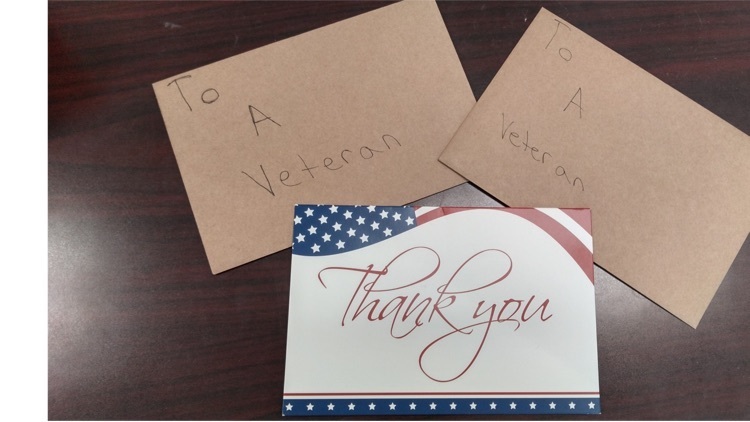 To
A
Veteran
To
A
Veteran
Thank you